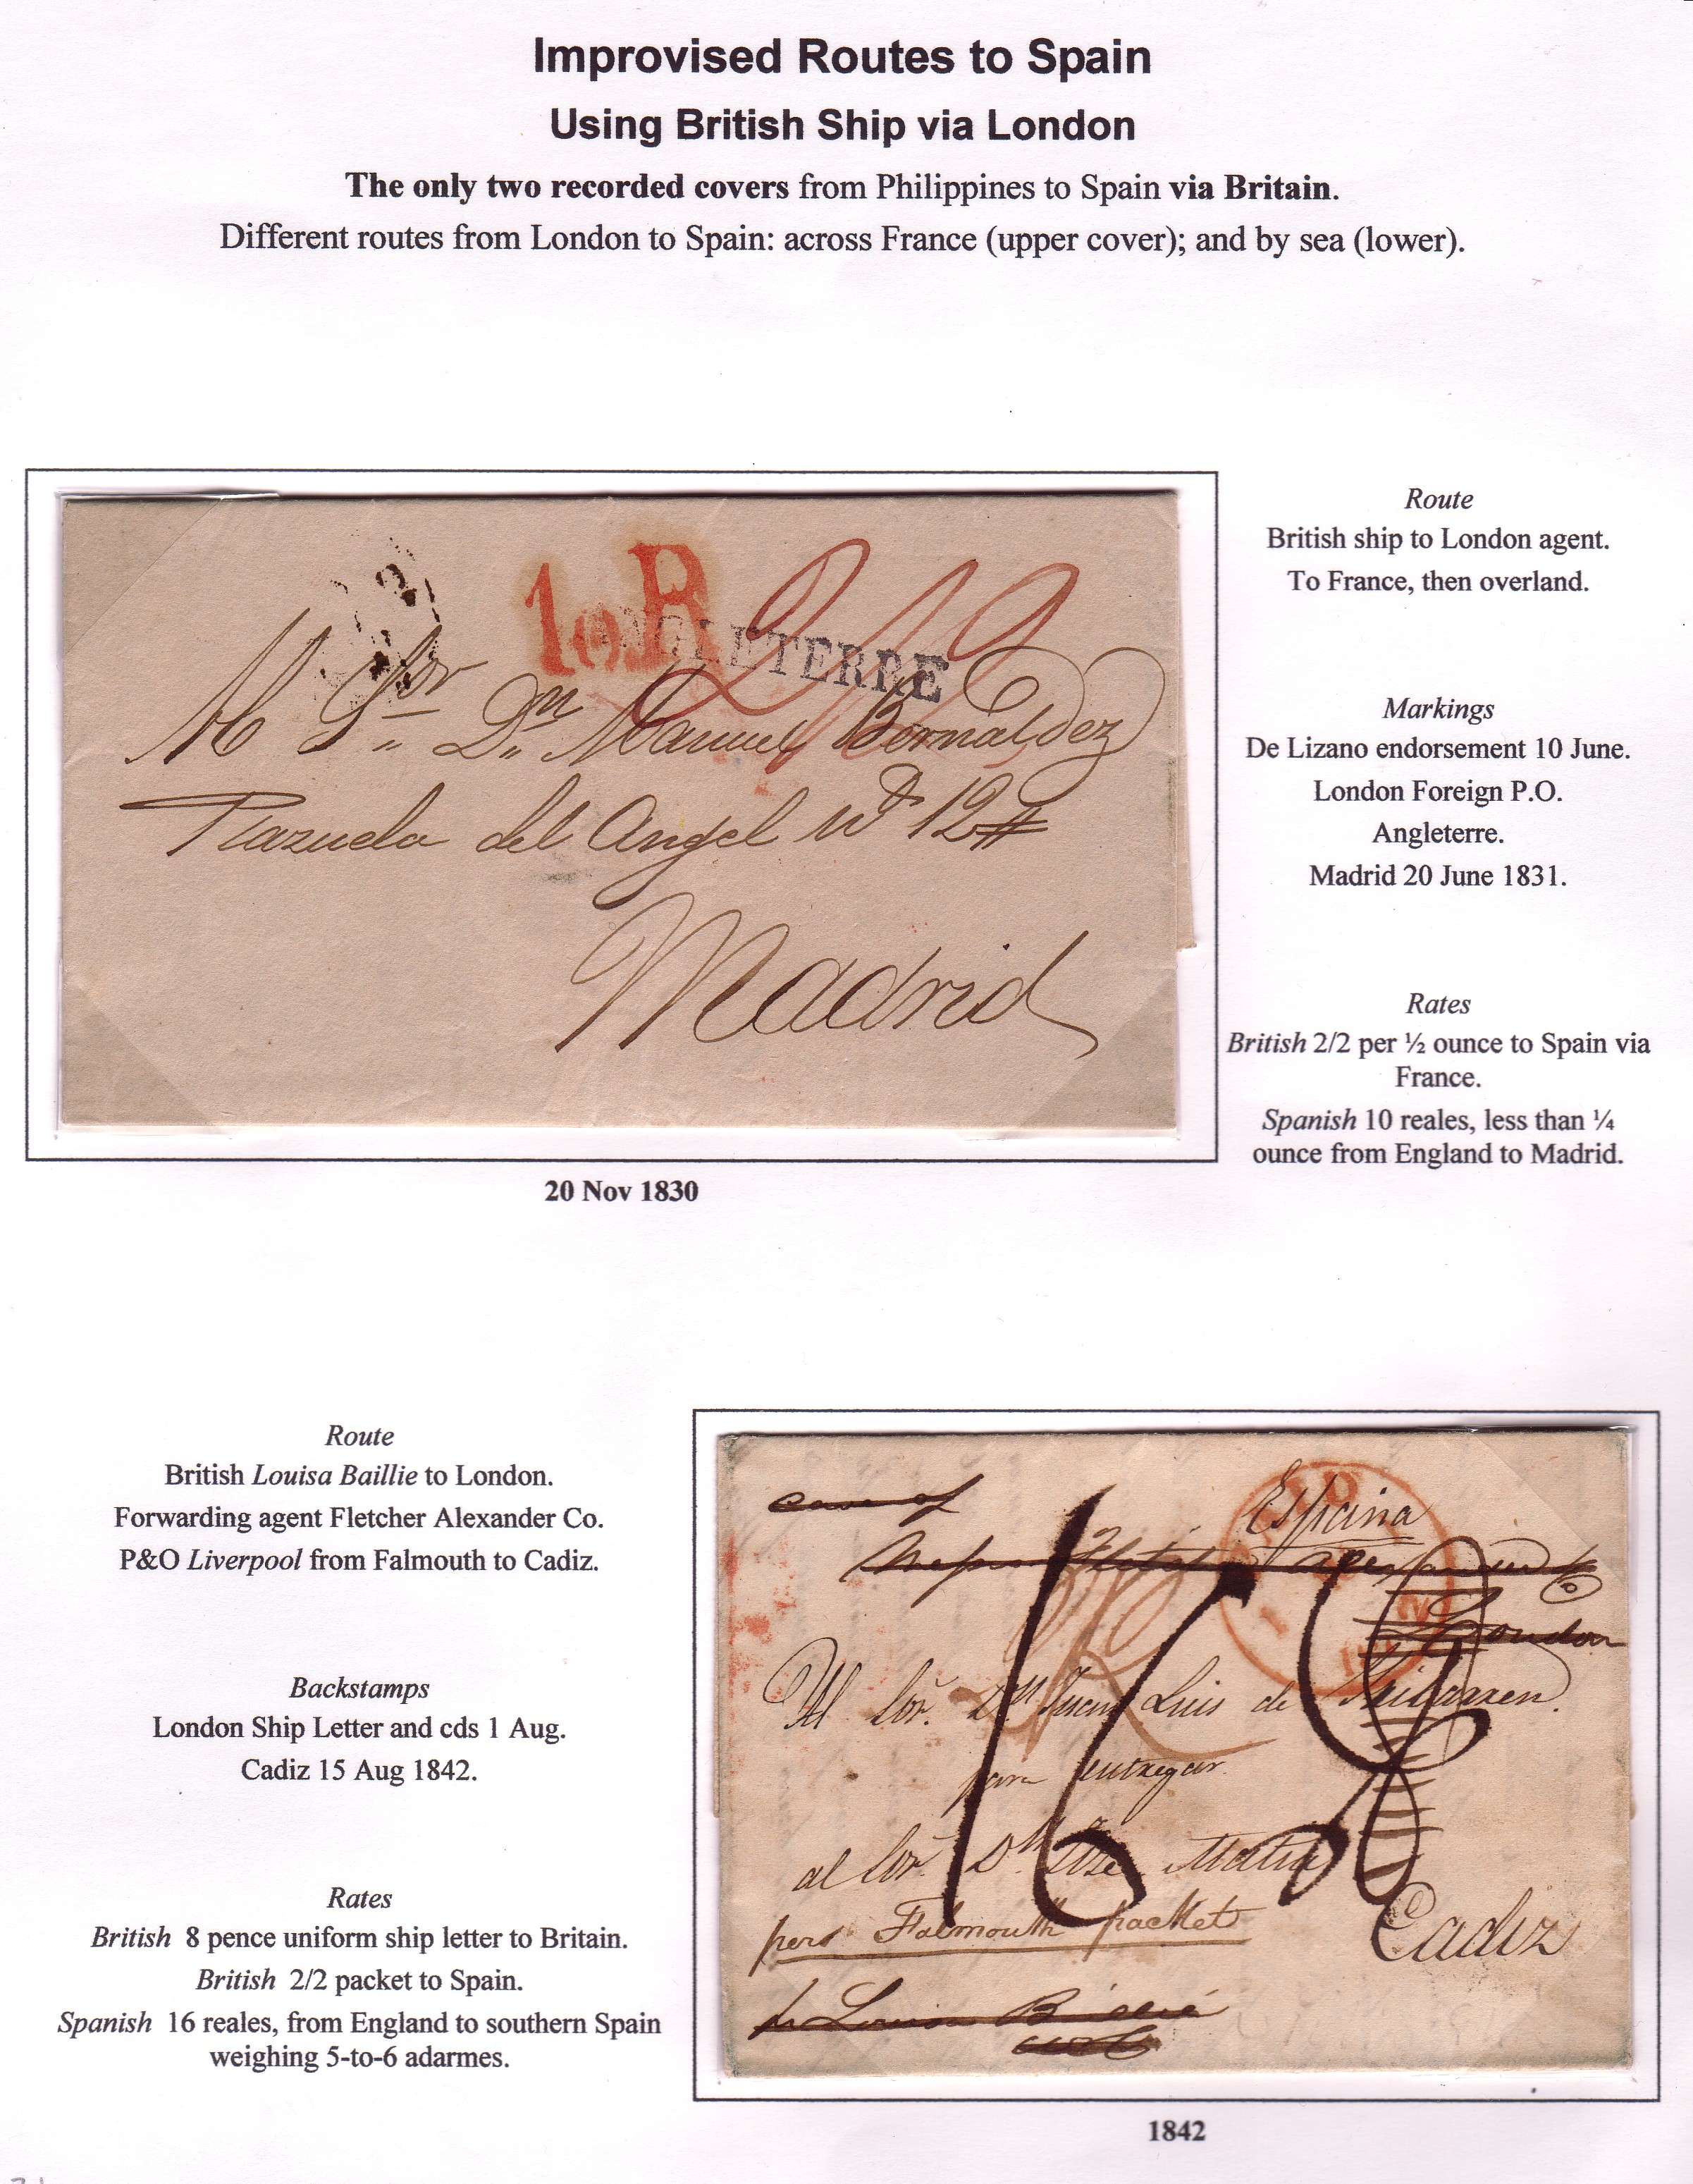 Improvised Routes to Spain
Using British Ship via London
The only two recorded covers from Philippines to Spain via Britain.
Different routes from London to Spain: across France (upper cover); and by sea (lower).
10 R
ANGLETERRE
Al Sor Dn Manuel Bernaldez
Plazuela del Angel no 12#
Madrid
20 Nov 1830
Route
British ship to London agent.
To France, then overland.
Markings
De Lizano endorsement 10 June.
London Foreign P.O.
Angleterre.
Madrid 20 June 1831.
Rates
British 2/2 per ½ ounce to Spain via
France.
Spanish 10 reales, less than ¼
ounce from England to Madrid.
Route
British Louisa Baillie to London.
Forwarding agent Fletcher Alexander Co.
P&O Liverpool from Falmouth to Cadiz.
Backstamps
London Ship Letter and cds 1 Aug.
Cadiz 15 Aug 1842.
Rates
British 8 pence uniform ship letter to Britain.
British 2/2 packet to Spain.
Spanish 16 reales, from England to southern Spain
weighing 5-to-6 adarmes.
care of
España
London
16
Al Sor. Dn Juan Luis de
para entregar
al Sor. Dn Jose Matia
per Falmouth packet
Cadiz
pr Louisa Baillie
1842